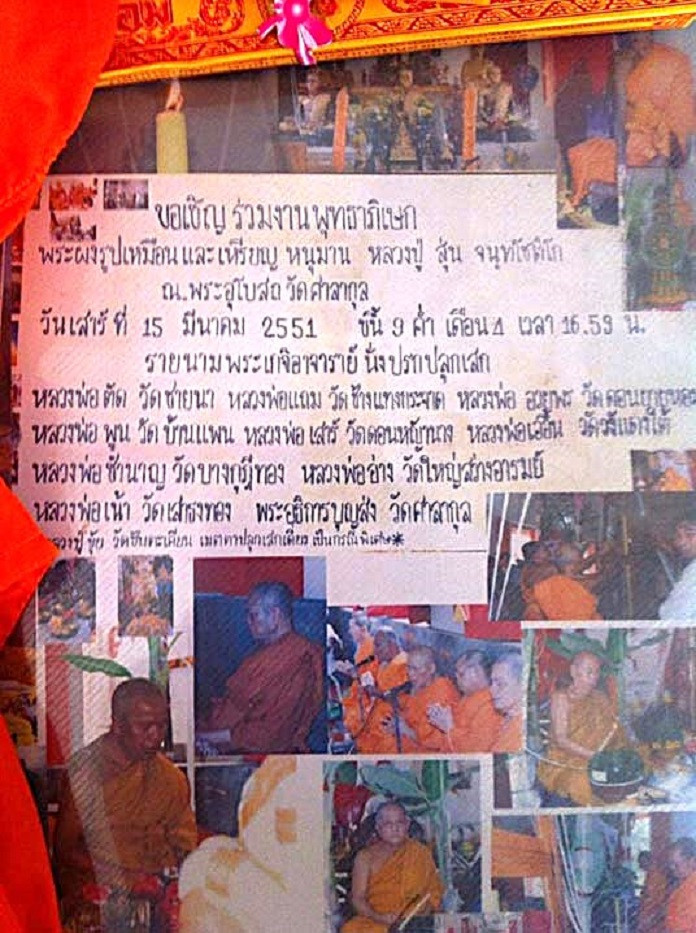 ขอเชิญ ร่วมงานพุทธาภิเษก
พระผงรูปเหมือน และ เหรียญ หนุมาน หลวงปู่ สุ่น จนฺทโชติโก
ณ.พระอุโบสถ วัดศาลากุล
วันเสาร์ ที่ 15 มีนาคม 2551 ขึ้น 9 ค่ำ เดือน 4 เวลา 16.59 น.
รายนามพระเกจิอาจารย์ นั่งปรกปลุกเสก
หลวงพ่อ ตัด วัดชายนา หลวงพ่อแถม วัดช้างแทงกระจาด หลวงพ่อ
หลวงพ่อ พูน วัดบ้านแพน หลวงพ่อ เสาร์ วัดดอนหญ้านาง หลวงพ่อเอื้อน วัดวังแดงใต้
หลวงพ่อ ชำนาญ วัดบางกุฎีทอง หลวงพ่ออ่าง วัดใหญ่สว่างอารมย์
หลวงพ่อ เน้า วัดเสาธงทอง พระอธิการบุญส่ง วัดศาลากุล
เมตตาปลุกเสกเดี่ยว เป็นกรณีพิเศษ*